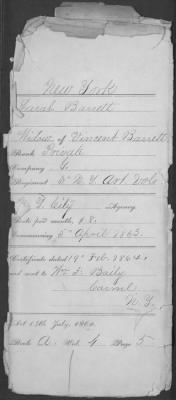 New York
Sarah Barrett
Widow of Vincent Barrett
Rank Private
Company G.
Regiment 6" N.Y. Art. Vols
N. Y. City Agency
Rate per month, $8.
Commencing 5" April 1863.
Certificate dated 19" Feb. 1864
and sent to Wm. F. Baily
Carmel
N. Y.
Act 14th July, 1862.
Book A Vol. 4 Page 5